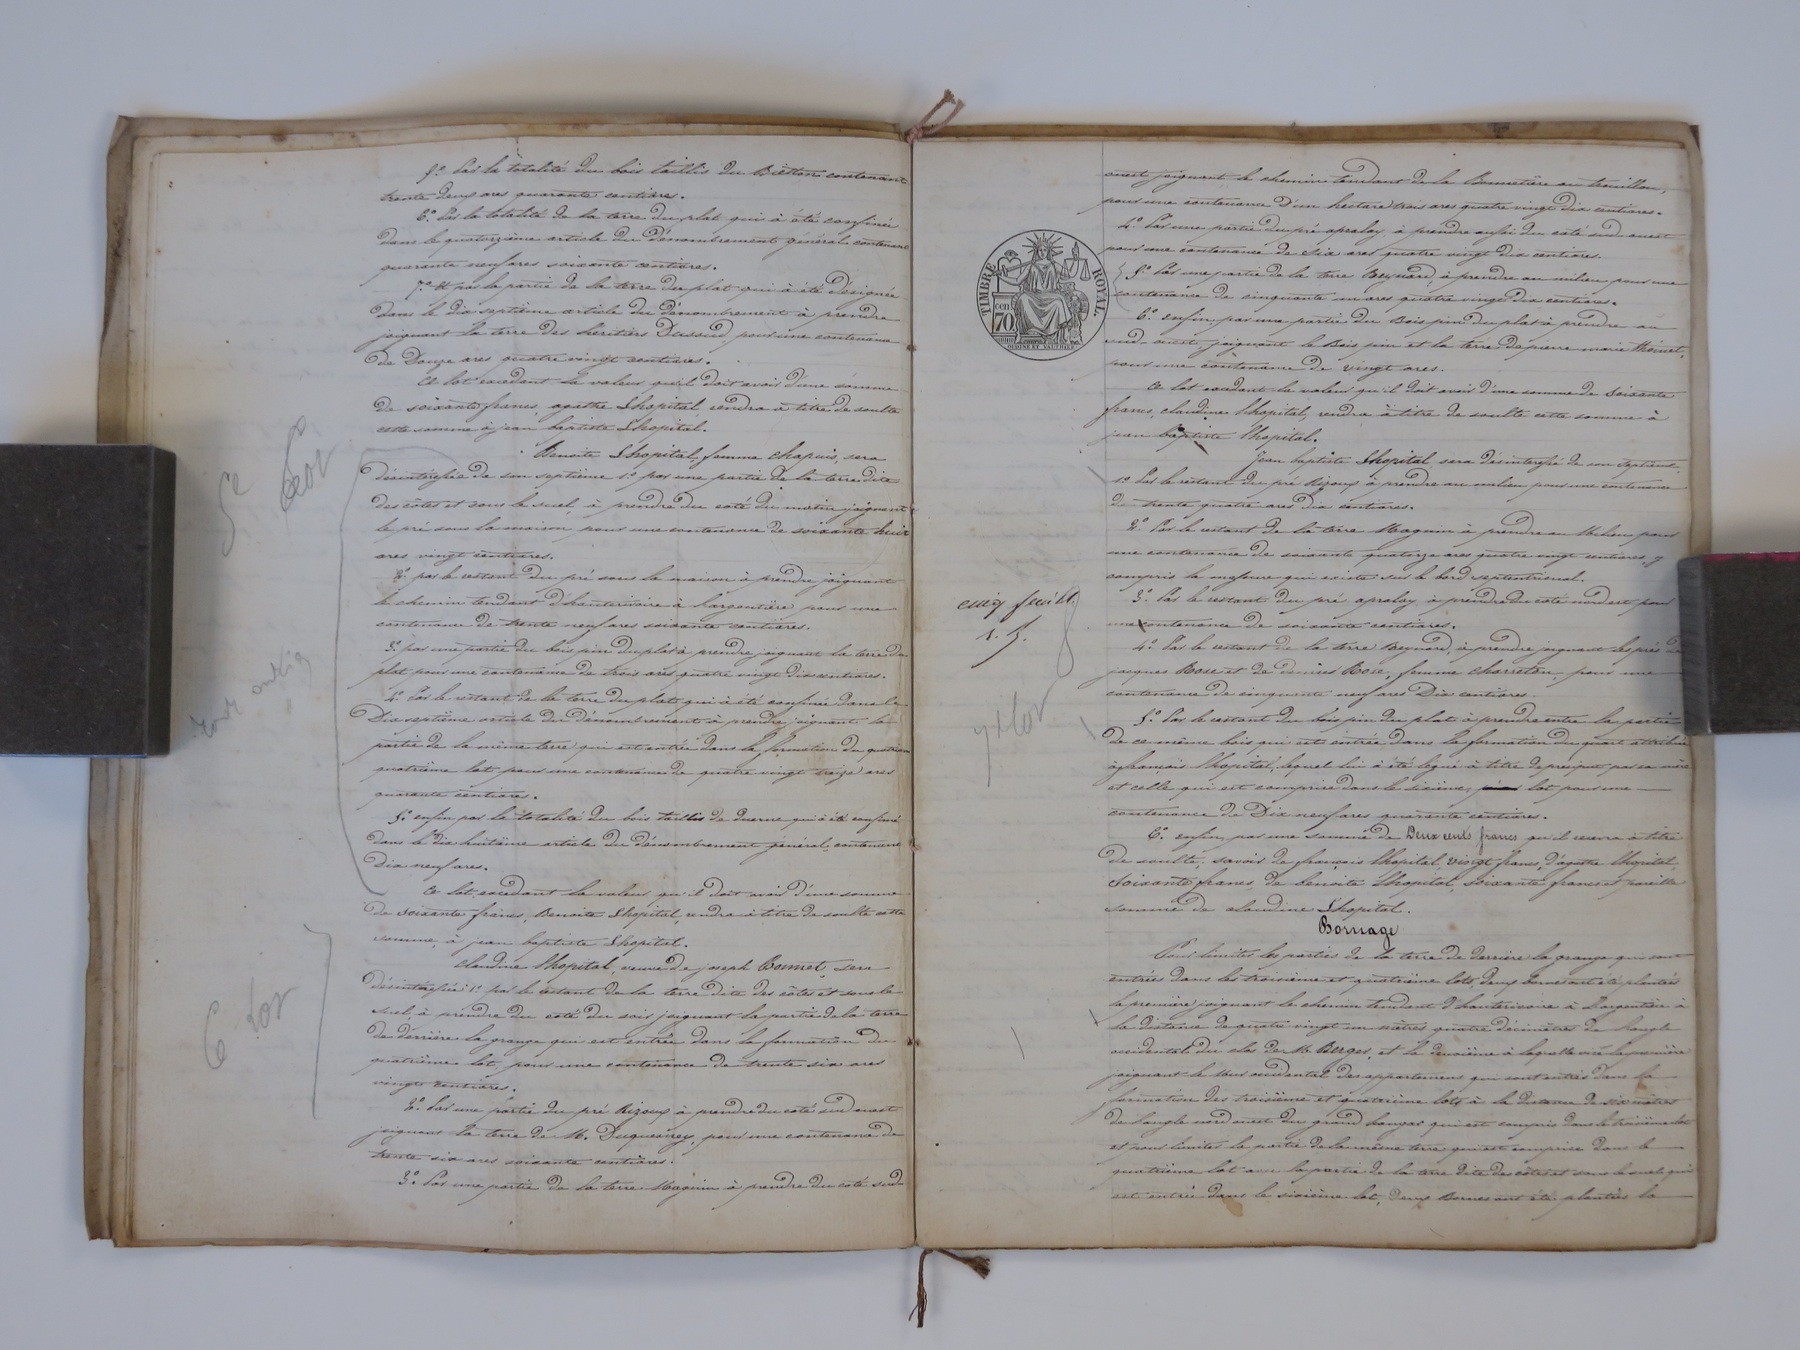 5° Par la totalité du bois taillis du Biétton contenant
trente deux ares quarante centiares.
6° Par la totalité de la terre du plat qui à été confinée
dans le quatorzième article du dénombrement général contenant
quarante neuf ares soixante centiares.
7° Et par la partie de la terre du plat qui à été désignée
dans le dix septième article du dénombrement à prendre
joignant la terre des héritiers pour une contenance
de Douze ares quatre vingt centiares.
Ce lot excédant la valeur qu'il doit avoir d'une somme
de soixante francs, agathe Lhopital rendra à titre de soulte
cette somme à jean baptiste Lhopital.
5e Lot
Benoite Lhopital, femme chapuis, sera
désintéressée de son septième 1° par une partie de la terre dite
des côtes et sous le suel à prendre du coté du matin joignant
le pré sous la maison pour une contenance de soixante huit
ares vingt centiares.
2° par le restant du pré sous la maison à prendre joignant
le chemin tendant d'hauterivoire à l'argentière pour une
contenance de trente neuf ares soixante centiares.
3° par une partie du bois pin du plat à prendre joignant la terre du
plat pour une contenance de trois ares quatre vingt dix centiares.
4° Par le restant de la terre du plat qui à été confinée dans le
Dix septième article du dénombrement à prendre joignant la
partie de la même terre qui est entrée dans la formation du
quatrième lot pour une contenance de quatre vingt treize ares
quarante centiares.
5° enfin par la totalité du bois taillis de duerne qui à été confiné
dans le dix huitième article du dénombrement général contenant
Dix neuf ares.
Ce lot excédant la valeur qu'il doit avoir d'une somme
de soixante francs, Benoite Lhopital, rendra à titre de soulte cette
somme à jean baptiste Lhopital.
6 Lot
Claudine Lhopital, veuve de joseph Bonnet, sera
désintéressée 1° par le restant de la terre dite des côtes et sous le
suel, à prendre du coté du soir joignant la partie de la terre
de derrière la grange qui est entrée dans la formation du
quatrième lot, pour une contenance de trente six ares
vingt centiares.
2° Par une partie du pré Rizoux à prendre du coté sud ouest
joignant la terre de M. Duquesney, pour une contenance de
trente six ares soixante centiares.
3° Par une partie de la terre Magnin à prendre du coté sud
ouest joignant le chemin tendant de la Bonnetière au
pour une contenance d'un hectare trois ares quatre vingt dix centiares.
4° Par une partie du pré apralay à prendre aussi du coté sud ouest
pour une contenance de Six ares quatre vingt dix centiares.
TIMBRE ROYAL
cen 70
5° Par une partie de la terre Beynard, à prendre au milieu pour une
contenance de cinquante un ares quatre vingt dix centiares.
6° enfin par une partie du Bois pin du plat à prendre au
sud ouest joignant le Bois pin et la terre de pierre marie Thoinet,
pour une contenance de vingt ares.
Ce lot excédant la valeur qu'il doit avoir d'une somme de Soixante
francs, claudine Lhopital, rendra à titre de soulte cette somme à
jean baptiste Lhopital.
7e Lot
Jean baptiste Lhopital sera désintéressé de son septième
1° Par le restant du pré Rizoux à prendre au milieu pour une contenance
de trente quatre ares dix centiares.
2° Par le restant de la terre Magnin à prendre au Milieu pour
une contenance de soixante quatorze ares quatre vingt centiares, y
compris la masure qui existe sur le bord septentrional.
3° Par le restant du pré apralay à prendre du coté nord est pour
une contenance de soixante centiares.
4° Par le restant de la terre Beynard, à prendre joignant les prés de
jacques Rose et de denise Rose, femme charreton, pour une
contenance de cinquante neuf ares Dix centiares.
5° Par le restant du bois pin du plat à prendre entre la partie
de ce même bois qui est entrée dans la formation du quart attribué
à françois Lhopital, lequel lui à été légué à titre de préciput par sa mère
et celle qui est comprise dans le sixième lot pour une
contenance de Dix neuf ares quarante centiares.
6° enfin, par une somme de Deux cents francs qu'il recevra à titre
de soulte, savoir de françois Lhopital vingt francs, d'agathe Lhopital,
Soixante francs, de benoite Lhopital, soixante francs et pareille
somme de claudine Lhopital.
Bornage
Pour limiter les parties de la terre de derrière la grange qui sont
entrées dans les troisième et quatrième lots, deux bornes ont été plantées
la première joignant le chemin tendant d'hauterivoire à L'argentière à
la distance de quatre vingt un mètres quatre décimètres de l'angle
occidental du clos de M. Berger, et la deuxième à laquelle vise la première
joignant le mur occidental des appartemens qui sont entrés dans la
formation des troisième et quatrième lots à la distance de six mètres
de l'angle nord ouest du grand hangar qui est compris dans le troisième lot
et pour limiter la partie de la même terre qui est comprise dans le
quatrième lot avec la partie de la terre dite des côtes et sous le suel qui
est entrée dans le sixième lot, deux Bornes ont été plantées la